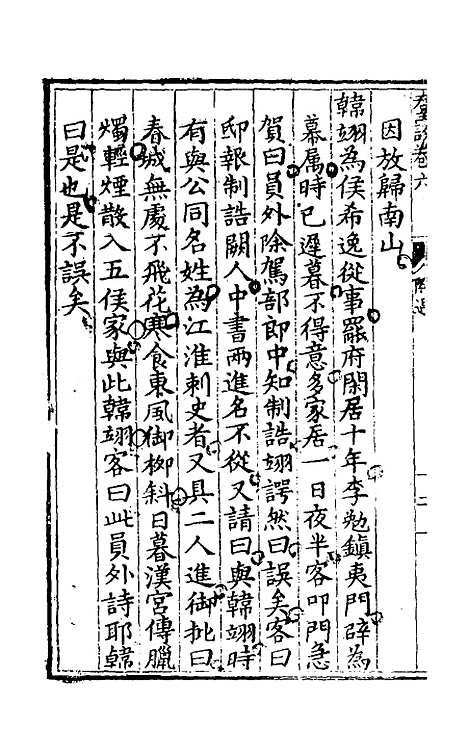 因放歸南山
韓翊為侯希逸從事罷府閑居十年李勉鎮夷門辟為
幕属時已遲暮不得意多家居一日夜半客叩門急
賀曰員外除駕部郎中知制誥翊愕然曰誤矣客曰
邸報制誥闕人中書兩進名不從又請曰與韓翊時
有與公同名姓為江淮刺史者又具二人進御批曰
春城無處不飛花寒食東風御栁斜日暮漢宮傳臘
燭輕煙散入五侯家與此韓翊客曰此員外詩耶韓
曰是也是不誤矣